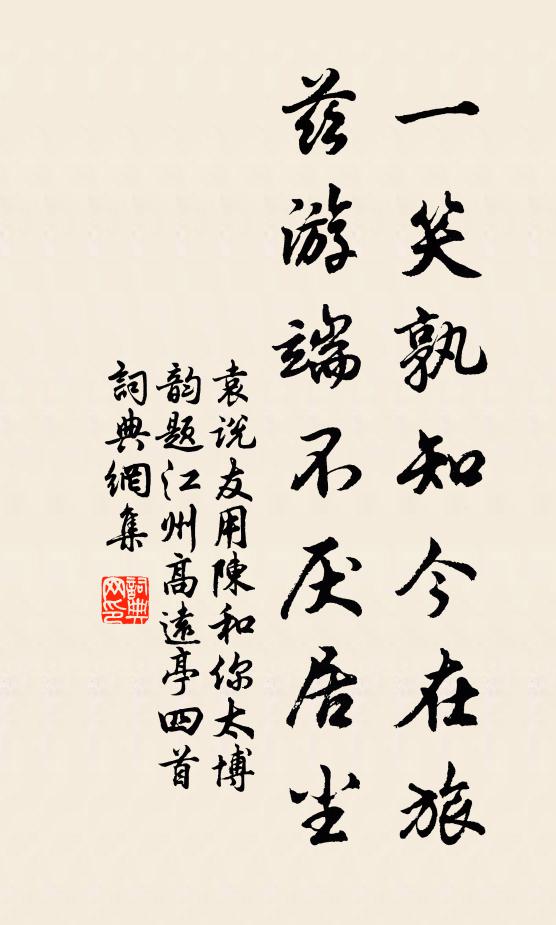 一笑孰知今在旅
兹游端不厌居尘
袁说友用陳和你太博
韵题江州高遠亭四首
詞典網集
詞典网印